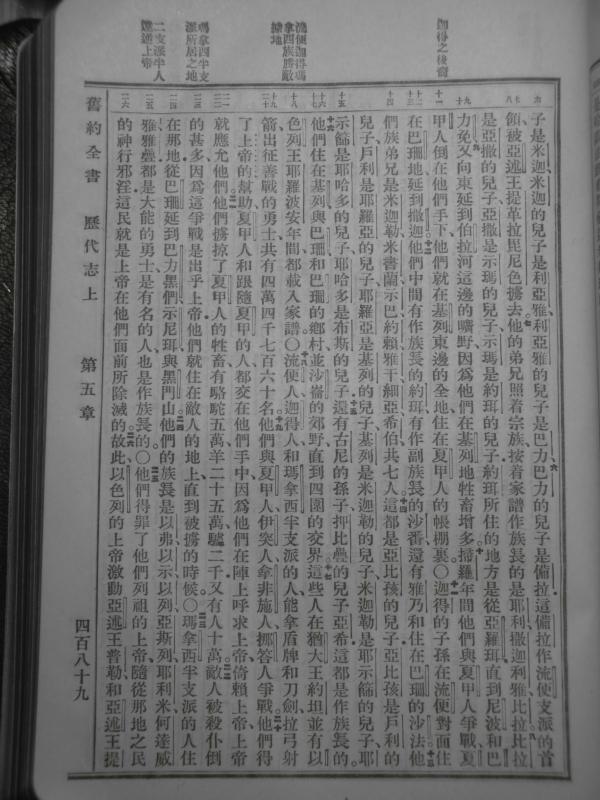 迦得之後裔
流便迦得瑪
拿西四族勝敵
擄地
瑪拿西半支
派所居之地
二支派半人
違逆上帝
子是米迦米迦的兒子是利亞雅利亞雅的兒子是巴力巴力的兒子是備拉這備拉作流便支派的首
領被亞述王提革拉毘尼色擄去他的弟兄照着宗族按着家譜作族長的是耶利撒迦利雅比拉
是亞撒的兒子亞撒是示瑪的兒子示瑪是約珥的兒子約珥所住的地方是從亞羅珥直到尼波和巴
力免又向東延到伯拉河這邊的曠野因爲他們在基列地牲畜增多掃羅年間他們與夏甲人爭戰夏
甲人倒在他們手下他們就在基列東邊的全地住在夏甲人的帳棚裏〇迦得的子孫在流便對面住
在巴珊地延到撒迦他們中間有作族長的約珥有作副族長的沙番還有雅乃和住在巴珊的沙法他
們族弟兄是米迦勒米書蘭示巴約賴雅干細亞希伯共七人這都是亞比孩的兒子亞比孩是戶利的
兒子戶利是耶羅亞的兒子耶羅亞是基列的兒子基列是米迦勒的兒子米迦勒是耶示篩的兒子耶
示篩是耶哈多的兒子耶哈多是布斯的兒子還有古尼的孫子押比疊的兒子亞希這都是作族長的
他們住在基列與巴珊和巴珊的鄉村並沙崙的郊野直到四圍的交界這些人在猶大王約坦並在以
色列王耶羅波安年間都載入家譜〇流便人迦得人和瑪拿西半支派的人能拿盾牌和刀劍拉弓射
箭出征善戰的勇士共有四萬四千七百六十名他們與夏甲人伊突人拿非施人挪答人爭戰他們得
了上帝的幫助夏甲人和跟隨夏甲的人都交在他們手中因爲他們在陣上呼求上帝倚賴上帝上帝
就應允他們他們擄掠了夏甲人的牲畜有駱駝五萬羊二十五萬驢二千又有人十萬敵人被殺仆倒
的甚多因爲這爭戰是出乎上帝他們就住在敵人的地上直到被擄的時候〇瑪拿西半支派的人住
在那地從巴珊延到巴力黑們示尼珥與黑門山他們的族長是以弗以示以列亞斯列耶利米何達威
雅雅疊都是大能的勇士是有名的人也是作族長的〇他們得罪了他們列祖的上帝隨從那地之民
的神行邪淫這民就是上帝在他們面前所除滅的故此以色列的上帝激動亞述王普勒和亞述王提
舊約全書 歷代志上 第五章 四百八十九